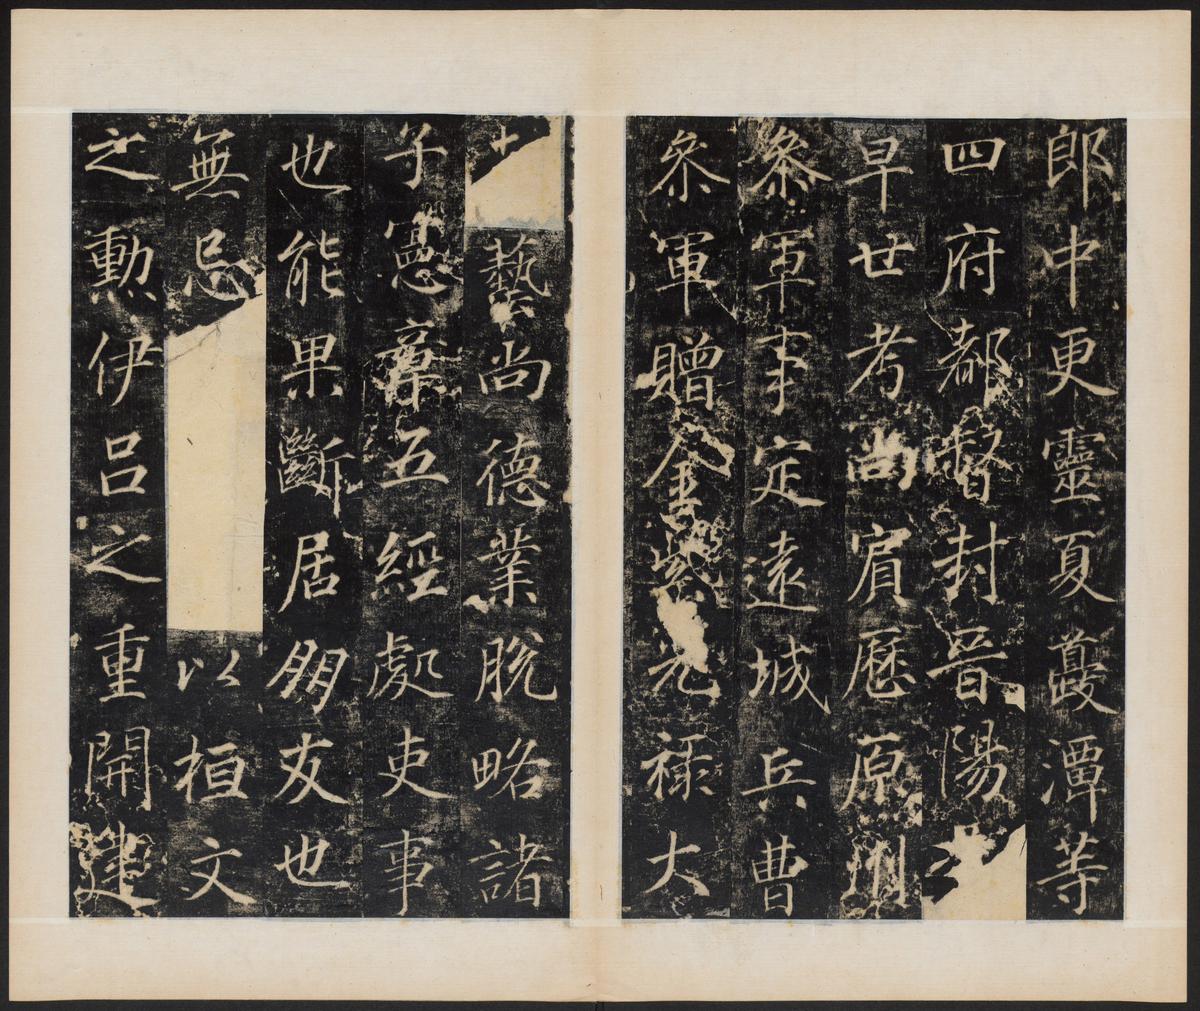 郎中更靈夏夔潭等
四府都督封晉陽
早世考尚賓歷原州
叅軍事定遠城兵曹
叅軍贈金紫光祿大
藝尚德業脫略諸
子憲章五經處吏事
也能果斷居朋友也
無忌以桓文
之勳伊呂之重開建